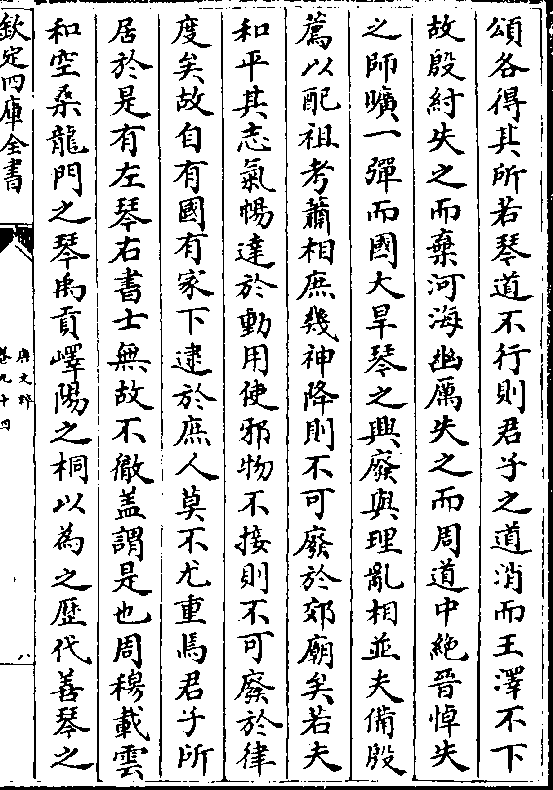 頌各得其所若琴道不行則君子之道消而王澤不下
故殷紂失之而棄河海幽厲失之而周道中絶晉悼失
之師曠一彈而國大旱琴之興廢與理亂相並夫備殷
薦以配祖考蕭相庶幾神降則不可廢於郊廟矣若夫
和平其志氣暢達於動用使邪物不接則不可廢於律
度矣故自有國有家下逮於庶人莫不尤重焉君子所
居於是有左琴右書士無故不徹盖謂是也周穆載雲
和空桑龍門之琴禹貢嶧陽之桐以為之歴代善琴之
欽定四庫全書
唐文粹
卷九十四
八